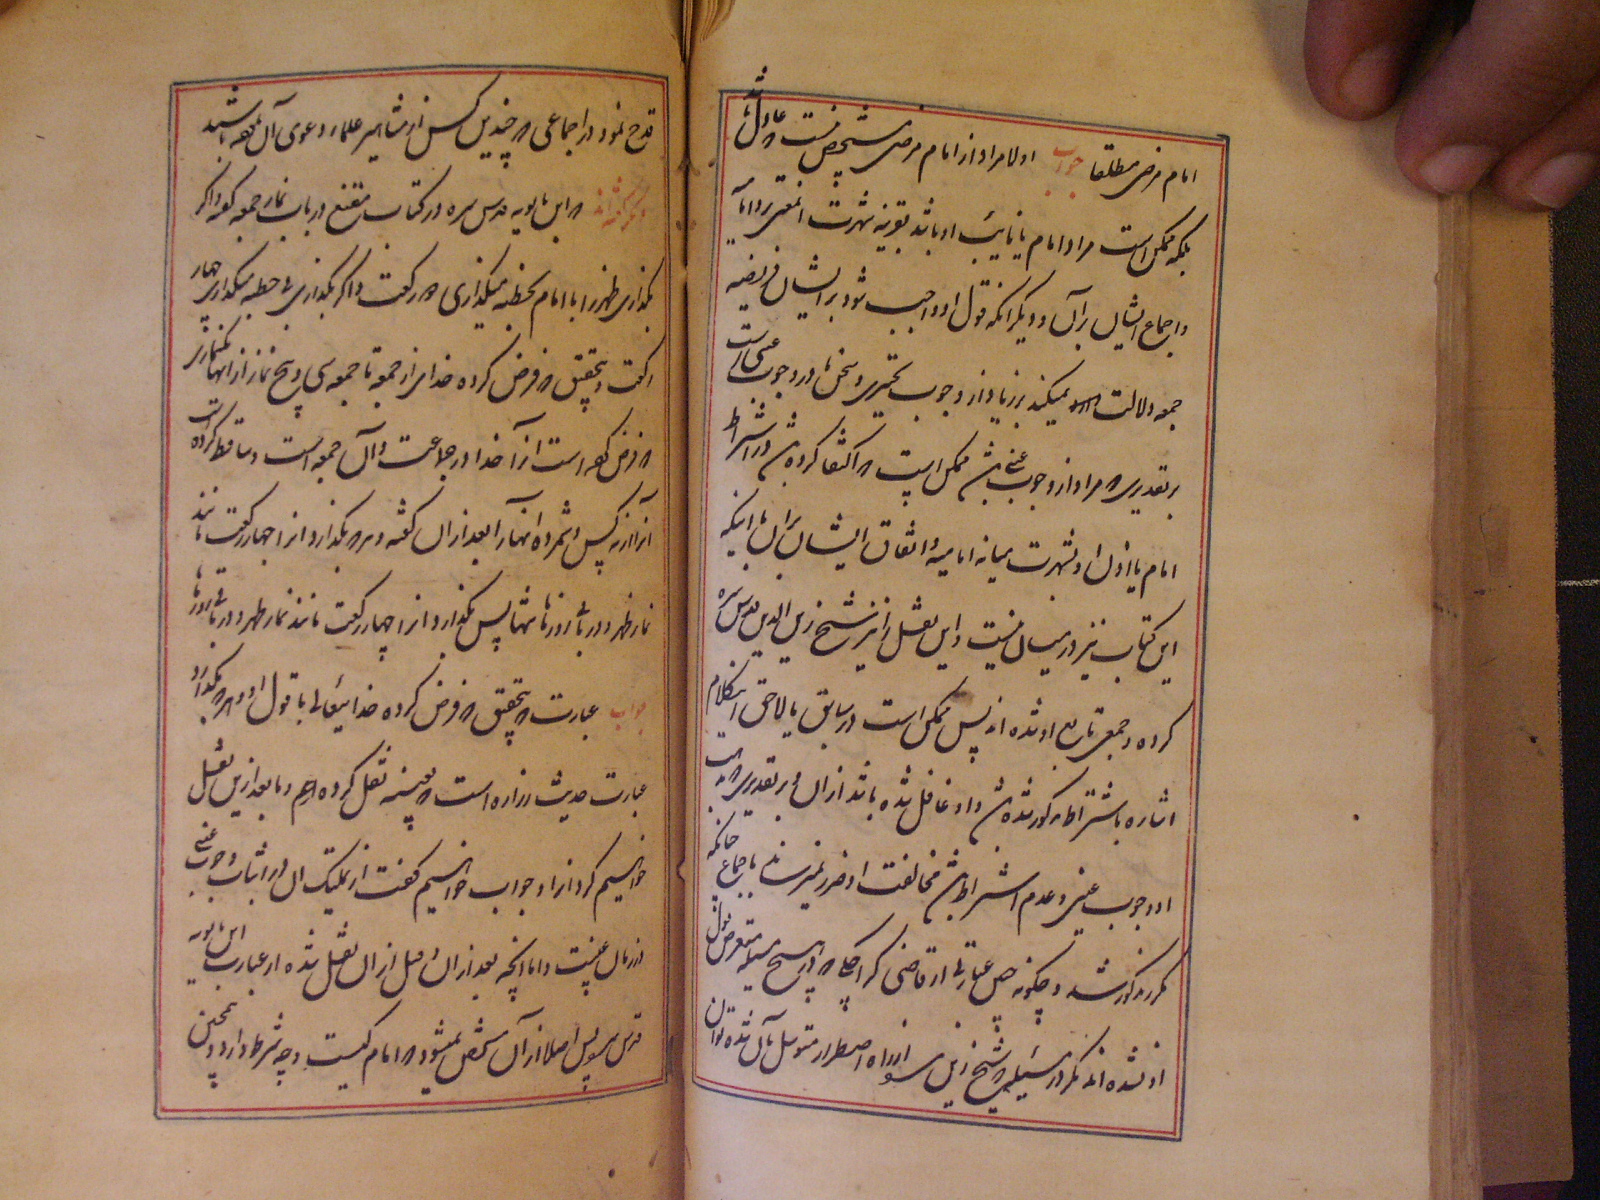 امام مرضی مطلقا جواب اولا مراد از امام مرضی مشخص نیست
بلکه ممکن است مراد امام یا نایب او باشد بقرینه شهرت
و اجماع ایشان بر آن و دیگر آنکه قول او واجب شود بر ایشان فریضه
جمعه دلالت نمیکند بر زیاده از وجوب تخییری و سخن ما در وجوب عینی است
بر تقدیری که مراد از وجوب عینی ممکن است که اکتفا کرده در اشتراط
امام یا اذن او بشهرت میانه امامیه و اتفاق ایشان بر آن با اینکه
این کتاب نیز در میان نیست و این نقل را نیز شیخ زین الدین قدس سره
کرده و جمعی تابع او شده اند پس ممکن است در سابق یا لاحق اینکلام
اشاره باشتراط مذکور شده و او غافل شده باشد از آن و بر تقدیری که
او وجوب عینی و عدم اشتراط مخالفت او ضرر نمیرساند باجماع چنانکه
مکرر مذکور شد و چگونه چنین عبارتی از قاضی کراجکی که در هیچ مسئله متعرض قول
او نشده اند مگر در مسئله که شیخ زین از راه اضطرار متوسل بآن شده
قدح نمود در اجماعی که چندین کس از مشاهیر علماء دعوی آن کرده باشند
که ابن بابویه قدس سره در کتاب مقنع در باب نماز جمعه گفته و اگر
بگذاری ظهر را با امام بخطبه میگذاری دو رکعت و اگر بگذاری بی خطبه میگذاری چهار
رکعت و بتحقیق که فرض کرده خدا از جمعه تا جمعه سی و پنج نماز از آنها یکنماز
که فرض کرده است آنرا خدا در جماعت و آن جمعه است و ساقط کرده است
آنرا از نه کس و شمرده آنها را بعد از آن گفته و هر که بگذارد آنرا چهار رکعت مانند
نماز ظهر در باقی روزها تنها پس بگذارد آنرا چهار رکعت مانند نماز ظهر در باقی روزها
جواب عبارت که بتحقیق که فرض کرده خدایتعالی تا قول او و هر که بگذارد
عبارت حدیث زراره است که بعینه نقل کرده و ما بعد ازین نقل
خواهیم کرد آنرا و جواب خواهیم گفت از تمسک آن در اثبات وجوب عینی
در زمان غیبت و اما آنچه بعد از آن و قبل از آن نقل شده از عبارت ابن بابویه
قدس سره پس اصلا از آن مشخص نمیشود که امام کیست و چه شرط دارد و همچنین